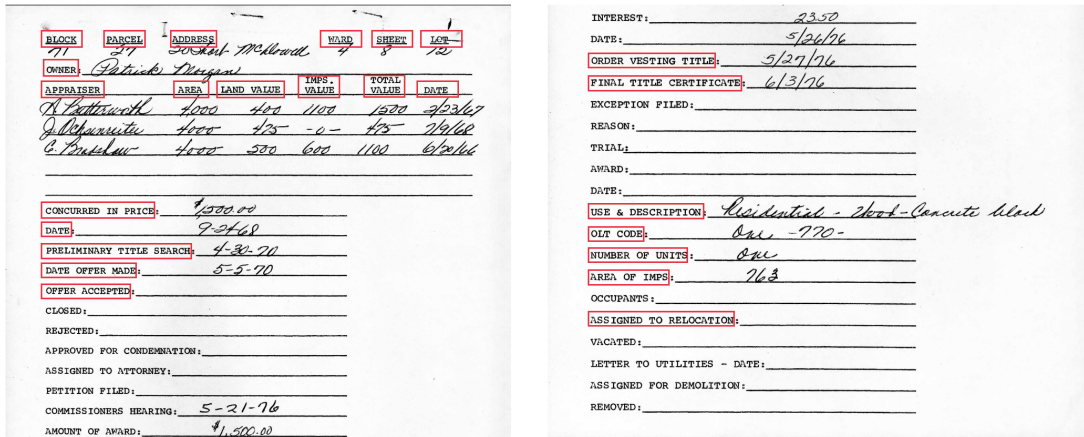 BLOCK PARCEL ADDRESS WARD SHEET LOT
71 27 20 Short McDowell 4 8 12
OWNER: Patrick Morgan
APPRAISER AREA LAND VALUE IMPS. VALUE TOTAL VALUE DATE
Butterworth 4,000 400 1100 1500 2/23/67
J. Ochsenreiter 4000 475 -0- 475 7/9/68
C. Bradshaw 4000 500 600 1100 6/20/66
CONCURRED IN PRICE: $1,500.00
DATE: 9-24-68
PRELIMINARY TITLE SEARCH: 4-30-70
DATE OFFER MADE: 5-5-70
OFFER ACCEPTED:
CLOSED:
REJECTED:
APPROVED FOR CONDEMNATION:
ASSIGNED TO ATTORNEY:
PETITION FILED:
COMMISSIONERS HEARING: 5-21-76
AMOUNT OF AWARD: $1,500.00
INTEREST: 23.50
DATE: 5/26/76
ORDER VESTING TITLE: 5/27/76
FINAL TITLE CERTIFICATE: 6/3/76
EXCEPTION FILED:
REASON:
TRIAL:
AWARD:
DATE:
USE & DESCRIPTION: Residential - Wood-Concrete block
OLT CODE: One -770-
NUMBER OF UNITS: One
AREA OF IMPS: 763
OCCUPANTS:
ASSIGNED TO RELOCATION:
VACATED:
LETTER TO UTILITIES - DATE:
ASSIGNED FOR DEMOLITION:
REMOVED: